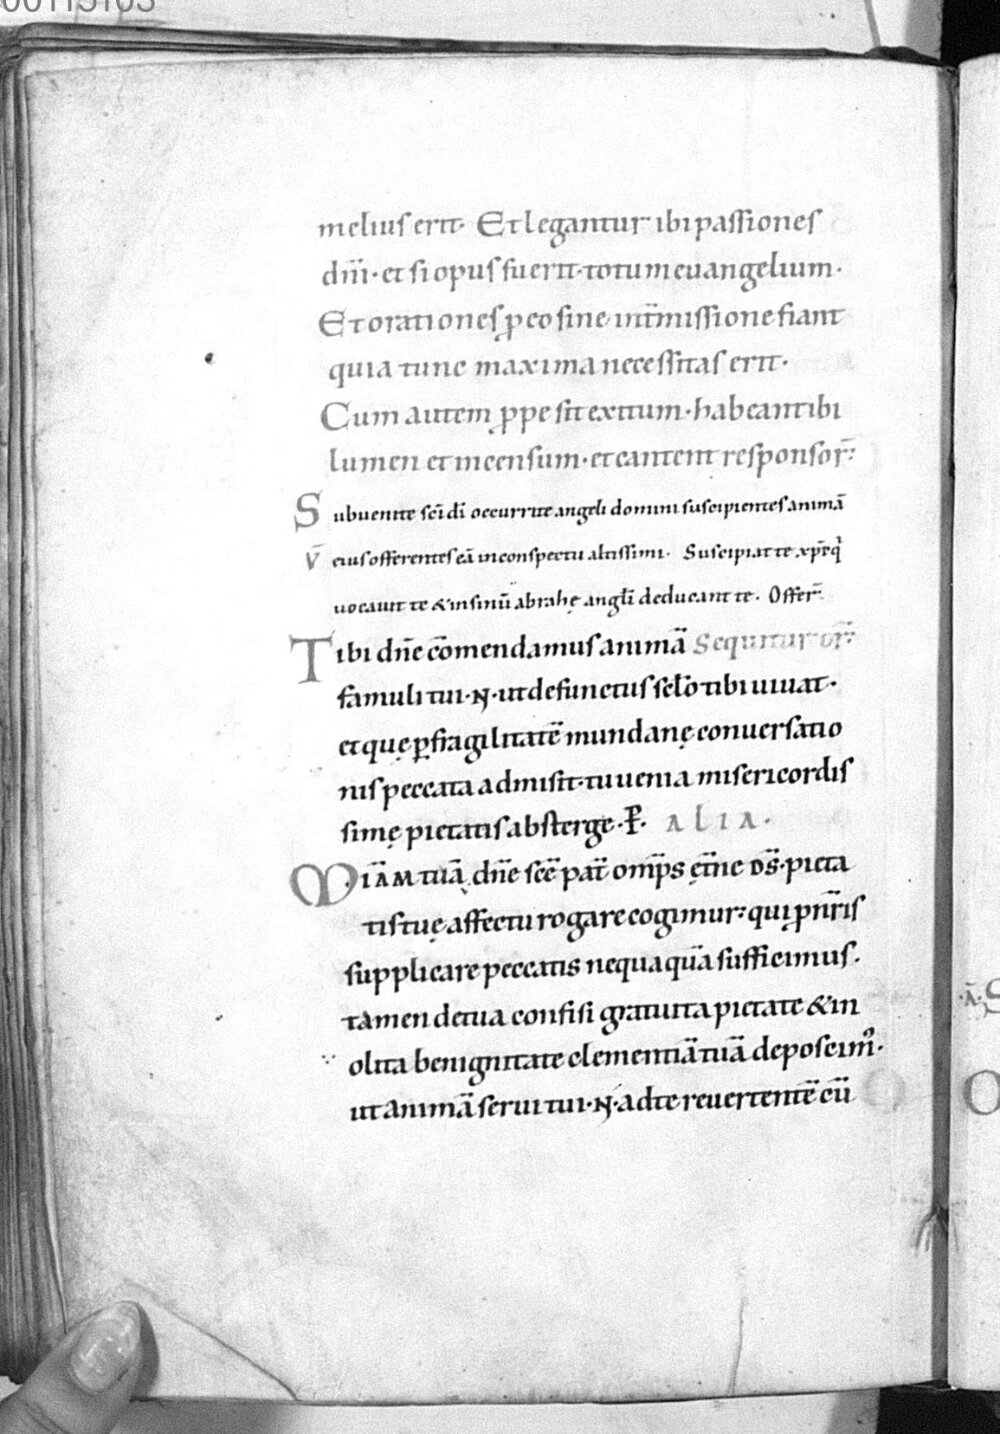 00115103
meliuſ erit· Et legantur ibi paſſioneſ
dn̄i· et ſi opuſ fuerit· totum euangelium·
Et orationeſ ꝓ eo ſine int̄miſſione fiant
quia tunc maxima neceſſitaſ erit·
Cum autem ꝓpe ſit exitum· habeant ibi
lumen et incenſum· et cantent reſponſor̄:
Subuenite ſc̄i dī occurrite angeli domini ſuſcipienteſ animā
V̄ eiuſ offerenteſ eā in conſpectu altiſſimi. Suſcipiat te xp̄c q̇
uocauit te & in ſinū abrahę angl̄i deducant te. Offer̄.
Tibi dn̄e cōmendamuſ animā Sequitur or̄:
famuli tui·N·ut defunctuſ ſcl̄o tibi uiuat·
et quę ꝑ fragilitatē mundanę conuerſatio
niſ peccata admiſit· tu uenia miſericordiſ
ſimę pietatiſ abſterge·P̄· ALIA·
MIĀM tuā dn̄e ſcē pat̄ omp̄s ęt̄ne D̄S· pieta
tiſ tuę affectu rogare cogimur: qui ꝓ nr̄iſ
ſupplicare peccatis nequaquā ſufficimuſ.
tamen de tua confiſi gratuita pietate & in
olita benignitate clementiā tuā depoſcim᷒·
ut animā ſerui tui·N·ad te reuertentē cū
·A·S
O